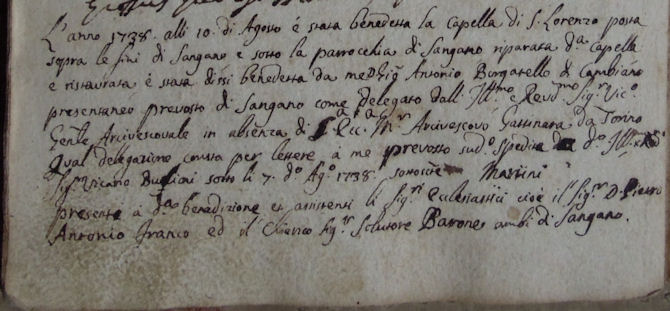 L'anno 1738. alli 10. di Agosto è stata benedetta la Capella di S. Lorenzo posta
sopra le fini di Sangano e sotto la parrocchia di Sangano riparata d.ª Capella
e ristaurata è stata benedetta da me Antonio Borgatello di Cambiano
presentaneo prevosto di Sangano come delegato dall' Ill.mo e Rev.mo Sig.r Vic.o
Gen.le Arcivescovale in absenza di Arcivescovo Gattinara da Torino
qual delegazione consta per lettere à me prevosto sud.o spedite da d.o Ill.
Sig.r Vicario sotto li 7. d.o Ag.o 1738. Martini
presente a d.ª benedizione et assistenti li Sig.ri Ecclesiastici cioè il Sig.r D. Pietro
Antonio Franco ed il Chierico Sig.r Solutore Barone ambi di Sangano.